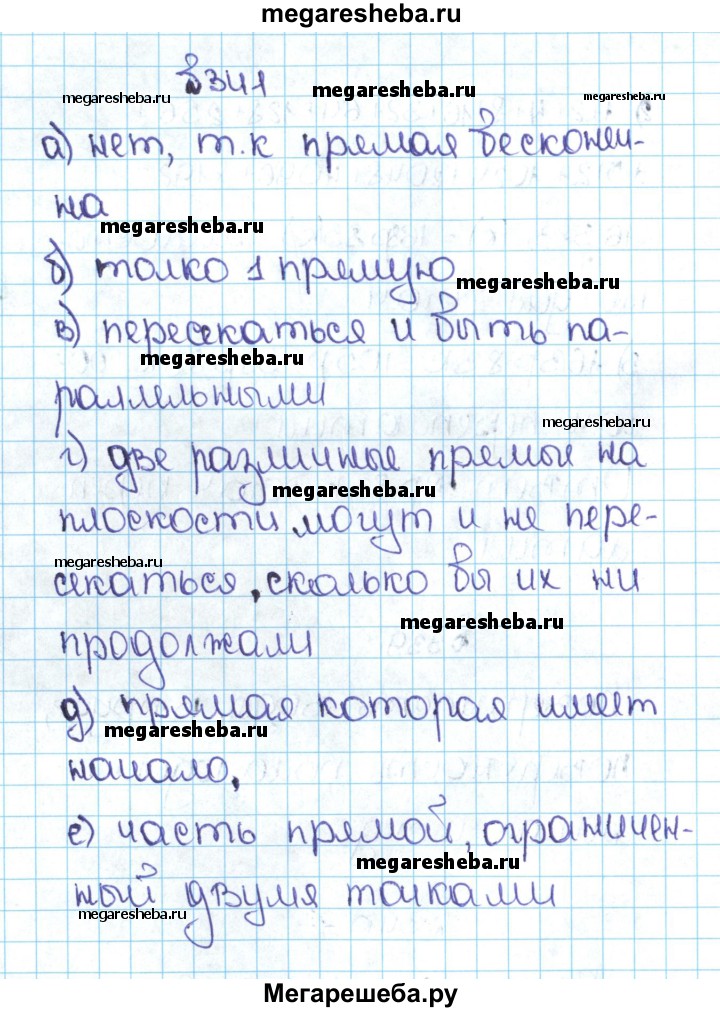 megaresheba.ru
№341
megaresheba.ru megaresheba.ru megaresheba.ru
а) нет, т.к прямая бесконеч-
на
megaresheba.ru
б) толко 1 прямую
megaresheba.ru
в) пересекаться и быть па-
megaresheba.ru
раллельными
megaresheba.ru
г) две различные прямые на
megaresheba.ru
плоскости могут и не пере-
megaresheba.ru
секаться, сколько бы их ни
megaresheba.ru
продолжали
д) прямая которая имеет
megaresheba.ru
начало,
е) часть прямой, ограничен-
megaresheba.ru
ный двумя точками
megaresheba.ru
Мегарешеба.ру